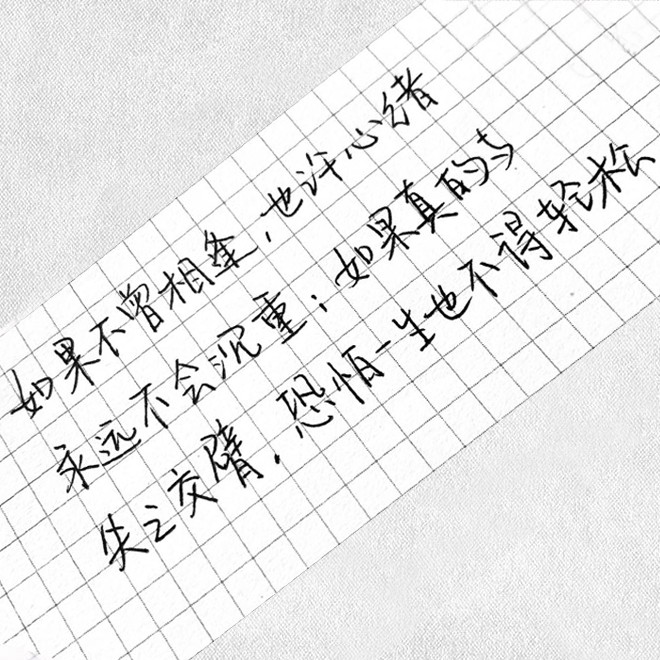 如果不曾相逢，也许心绪
永远不会沉重；如果真的与
失之交臂．恐怕一生也不得轻松